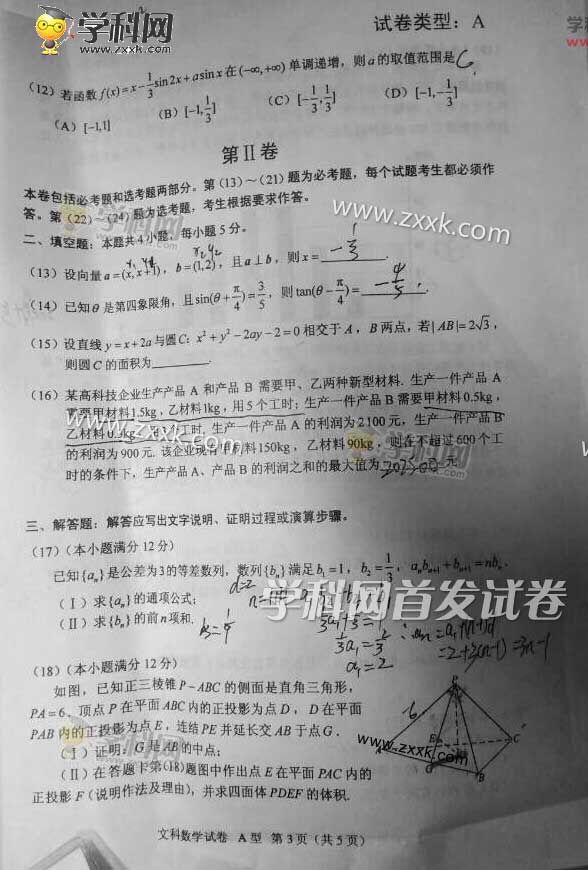 学科网
www.zxxk.com
试卷类型：A
学科
(12) 若函数f(x)=x-1/3sin2x+asinx在(-∞,+∞)单调递增，则a的取值范围是C
(A) [-1,1] (B) [-1,1/3] (C) [-1/3,1/3] (D) [-1,-1/3]
第Ⅱ卷
本卷包括必考题和选考题两部分。第(13)～(21)题为必考题，每个试题考生都必须作
答。第(22)～(24)题为选考题，考生根据要求作答。
www.zxxk.com
二、填空题：本题共4小题，每小题5分。
(13) 设向量a=(x,x+1)，b=(1,2)，且a⊥b，则x=-1/3.
(14) 已知θ是第四象限角，且sin(θ+π/4)=3/5，则tan(θ-π/4)=-4/5.
(15) 设直线y=x+2a与圆C：x²+y²-2ay-2=0相交于A，B两点，若|AB|=2√3，
则圆C的面积为________.
(16) 某高科技企业生产产品A和产品B需要甲、乙两种新型材料.生产一件产品A
需要甲材料1.5kg，乙材料1kg，用5个工时；生产一件产品B需要甲材料0.5kg，
乙材料0.3kg，用3个工时，生产一件产品A的利润为2100元，生产一件产品B
的利润为900元.该企业现有甲材料150kg，乙材料90kg，则在不超过600个工
时的条件下，生产产品A、产品B的利润之和的最大值为 元
www.zxxk.com
三、解答题：解答应写出文字说明、证明过程或演算步骤。
(17)（本小题满分12分）
已知{aₙ}是公差为3的等差数列，数列{bₙ}满足b₁=1，b₂=1/3，aₙbₙ₊₁+bₙ₊₁=nbₙ.
(Ⅰ) 求{aₙ}的通项公式；
(Ⅱ) 求{bₙ}的前n项和.
学科网首发试卷
1/3a₁+1/3=1
1/3a₁=2/3
a₁=2
∴an=a₁+(n-1)d
=2+3(n-1)=3n-1
(18)（本小题满分12分）
如图，已知正三棱锥P-ABC的侧面是直角三角形，
PA=6，顶点P在平面ABC内的正投影为点D，D在平面
PAB内的正投影为点E，连结PE并延长交AB于点G.
(Ⅰ) 证明：G是AB的中点；
(Ⅱ) 在答题卡第(18)题图中作出点E在平面PAC内的
正投影F（说明作法及理由），并求四面体PDEF的体积.
P
6
A
E
G
B
C
www.zxxk.com
文科数学试卷 A型 第3页（共5页）